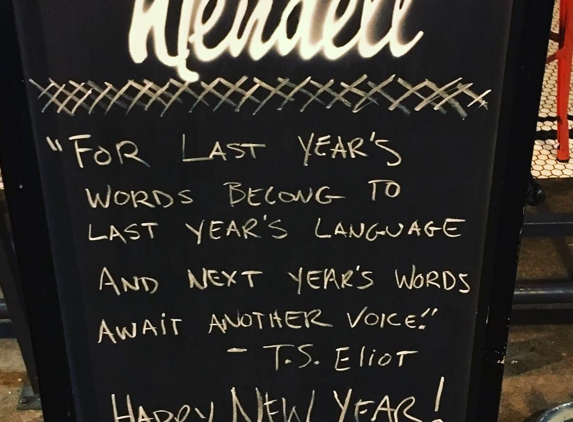 Wendell
"FOR LAST YEAR'S
WORDS BELONG TO
LAST YEAR'S LANGUAGE
AND NEXT YEAR'S WORDS
AWAIT ANOTHER VOICE."
- T.S. ELIOT
HAPPY NEW YEAR!